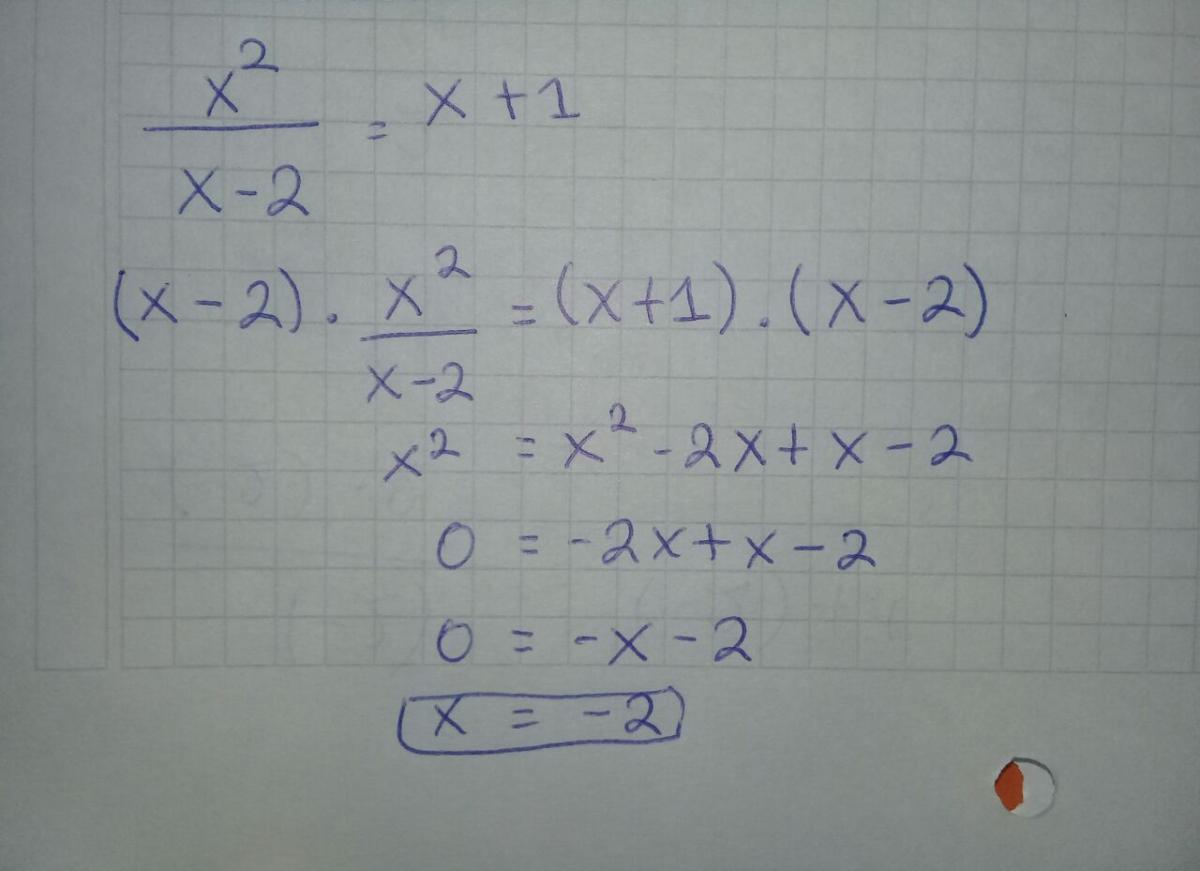 x² / x-2 = x+1
(x-2) . x² / x-2 = (x+1) . (x-2)
x² = x² -2x+x-2
0 = -2x+x-2
0 = -x-2
x = -2